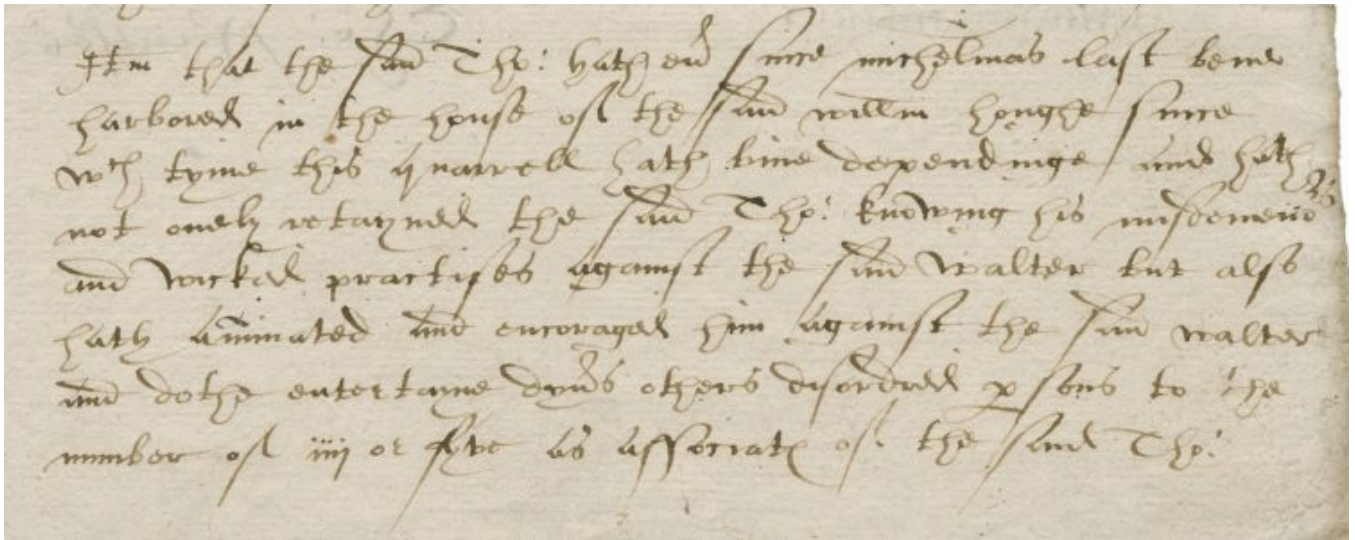 Itm that the said Tho: hath eũ since michelmas last bene
harbored in the house of the said willm houghe since
wch tyme this quarrell hath bine dependinge and hath
not onely retayned the said Tho: knowing his misdemeno rs
and wicked practises against the said walter but also
hath Animated and encoraged him against the said walter
and dothe entertayne dyũs others disordred psons to the
number of iiij or fyve as associats of the said Tho: